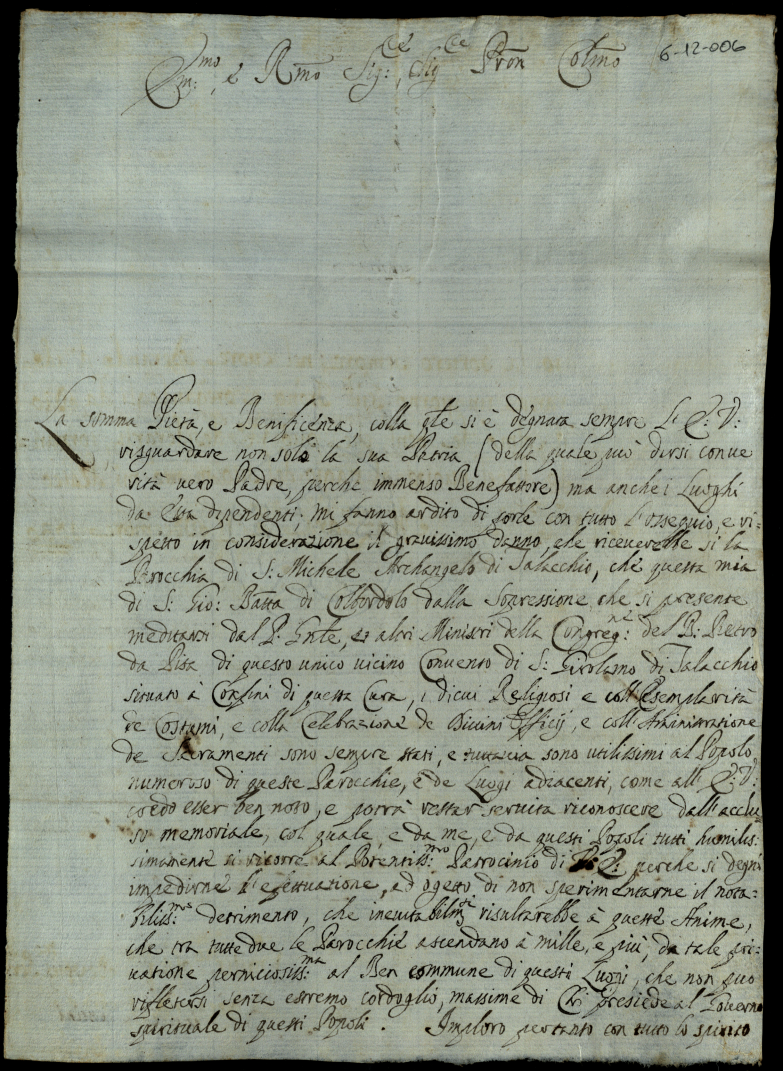 Em:mo, e Rmo Sig:re, Sig:re Pron Colmo
6-12-006
La somma Pietà, e Benificenza, colla qle si è degnata sempre L' E: V:
risguardare non solo la sua Patria (della quale può dirsi con ve
rità vero Padre, perche immenso Benefattore) ma anche i Luoghi
da essa dipendenti; mi fanno ardito di porle con tutto l'ossequio, e ri=
spetto in considerazione il gravissimo danno, che riceverebbe sì la
Parocchia di S: Michele Archangelo di Talacchio, chè questa mia
di S: Gio: Batta di Colbordolo dalla Sopressione, che si presente
meditarsi dal P: Gnle, et altri Ministri della Congreg:ne del B: Pietro
da Pisa di questo unico vicino Convento di S: Girolamo di Talacchio
situato à Confini di questa Cura, i di cui Religiosi e coll'Esemplarità
de Costumi, e colla Celebrazione de Divini Officij, e coll'Aministratione
de Sacramenti sono sempre stati, e tuttavia sono utilissimi al Popolo
numeroso di queste Parocchie, e de Luogi adiacenti, come all' E: V:
credo esser ben noto, e potrà restar servita riconoscere dall'acclu
so memoriale, col quale, e da me, e da questi Popoli tutti humilis:
simamente si ricorre al Potentiss:mo Patrocinio di V: E: perche si degni
impedirne l'effettuatione, ad ogetto di non sperimentarne il nota=
biliss:mo detrimento, che inevitabilmte risultarebbe à queste Anime,
che tra tutte due le Parocchie ascendano à mille, e più, da tale pri=
vatione perniciosiss:ma al Ben commune di questi Luogi, che non può
riflettersi senza estremo cordoglio, massime di Chi presiede al Governo
spirituale di questi Popoli. Imploro pertanto con tutto lo spirito